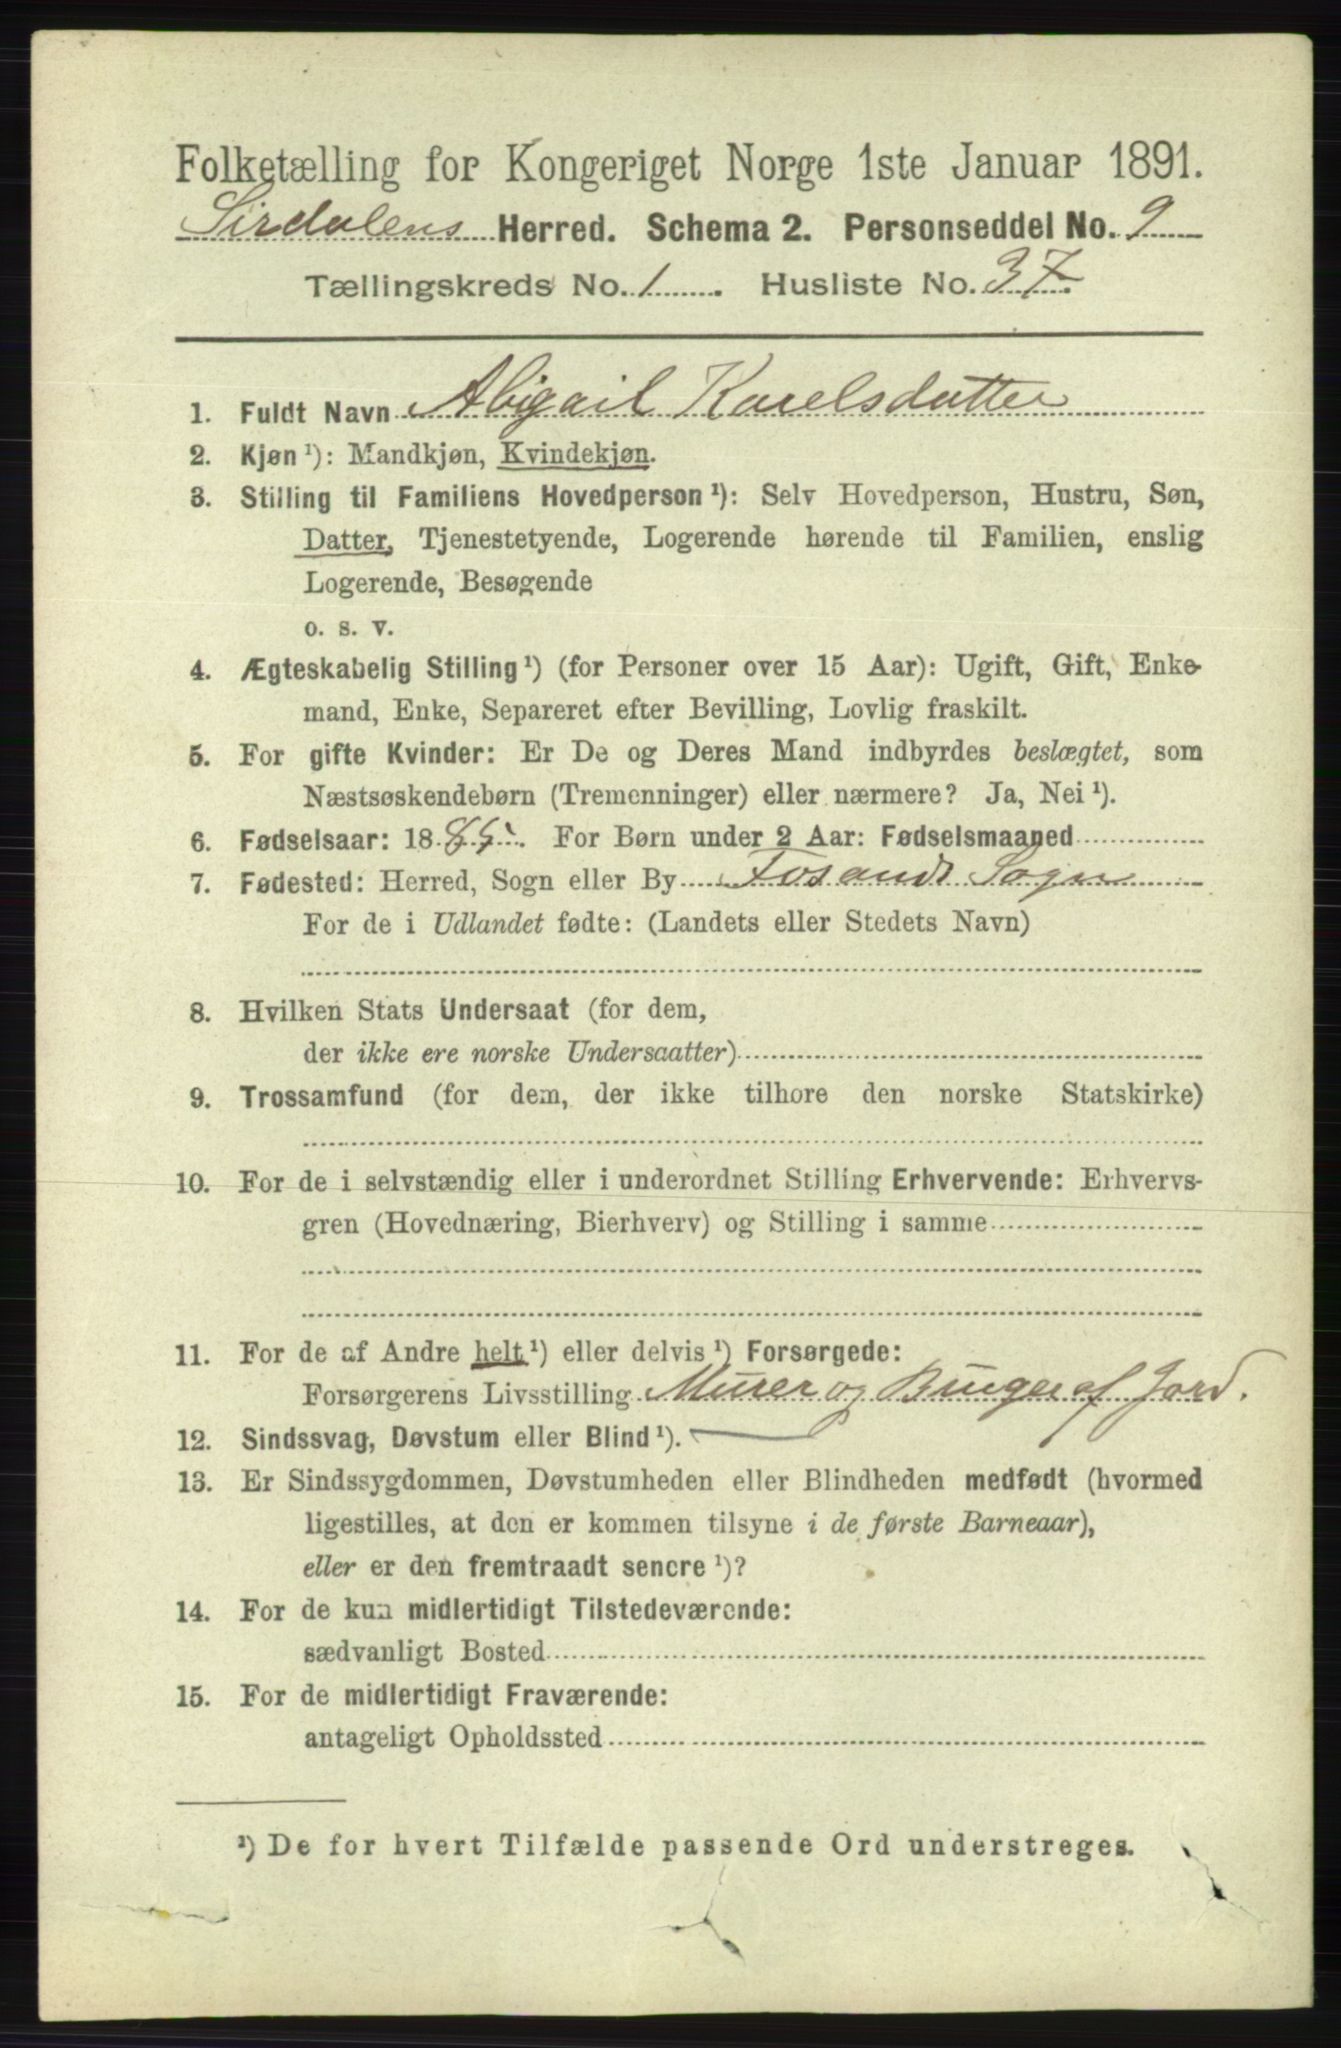 Folketælling for Kongeriget Norge 1ste Januar 1891.
Sirdalens Herred. Schema 2. Personseddel No. 9
Tællingskreds No. 1. Husliste No. 37.
1. Fuldt Navn Abigail Karelsdatter
2. Kjøn ¹): Mandkjøn, Kvindekjøn.
3. Stilling til Familiens Hovedperson ¹): Selv Hovedperson, Hustru, Søn,
Datter, Tjenestetyende, Logerende hørende til Familien, enslig
Logerende, Besøgende
o. s. v.
4. Ægteskabelig Stilling ¹) (for Personer over 15 Aar): Ugift, Gift, Enke-
mand, Enke, Separeret efter Bevilling, Lovlig fraskilt.
5. For gifte Kvinder: Er De og Deres Mand indbyrdes beslægtet, som
Næstsøskendebørn (Tremenninger) eller nærmere? Ja, Nei ¹).
6. Fødselsaar: 1885. For Børn under 2 Aar: Fødselsmaaned
7. Fødested: Herred, Sogn eller By Fosands Sogn
For de i Udlandet fødte: (Landets eller Stedets Navn)
8. Hvilken Stats Undersaat (for dem,
der ikke ere norske Undersaatter)
9. Trossamfund (for dem, der ikke tilhøre den norske Statskirke)
10. For de i selvstændig eller i underordnet Stilling Erhvervende: Erhvervs-
gren (Hovednæring, Bierhverv) og Stilling i samme
11. For de af Andre helt ¹) eller delvis ¹) Forsørgede:
Forsørgerens Livsstilling Murer og Bruger af Jord.
12. Sindssvag, Døvstum eller Blind ¹).
13. Er Sindssygdommen, Døvstumheden eller Blindheden medfødt (hvormed
ligestilles, at den er kommen tilsyne i de første Barneaar),
eller er den fremtraadt senere ¹)?
14. For de kun midlertidigt Tilstedeværende:
sædvanligt Bosted
15. For de midlertidigt Fraværende:
antageligt Opholdssted
¹) De for hvert Tilfælde passende Ord understreges.